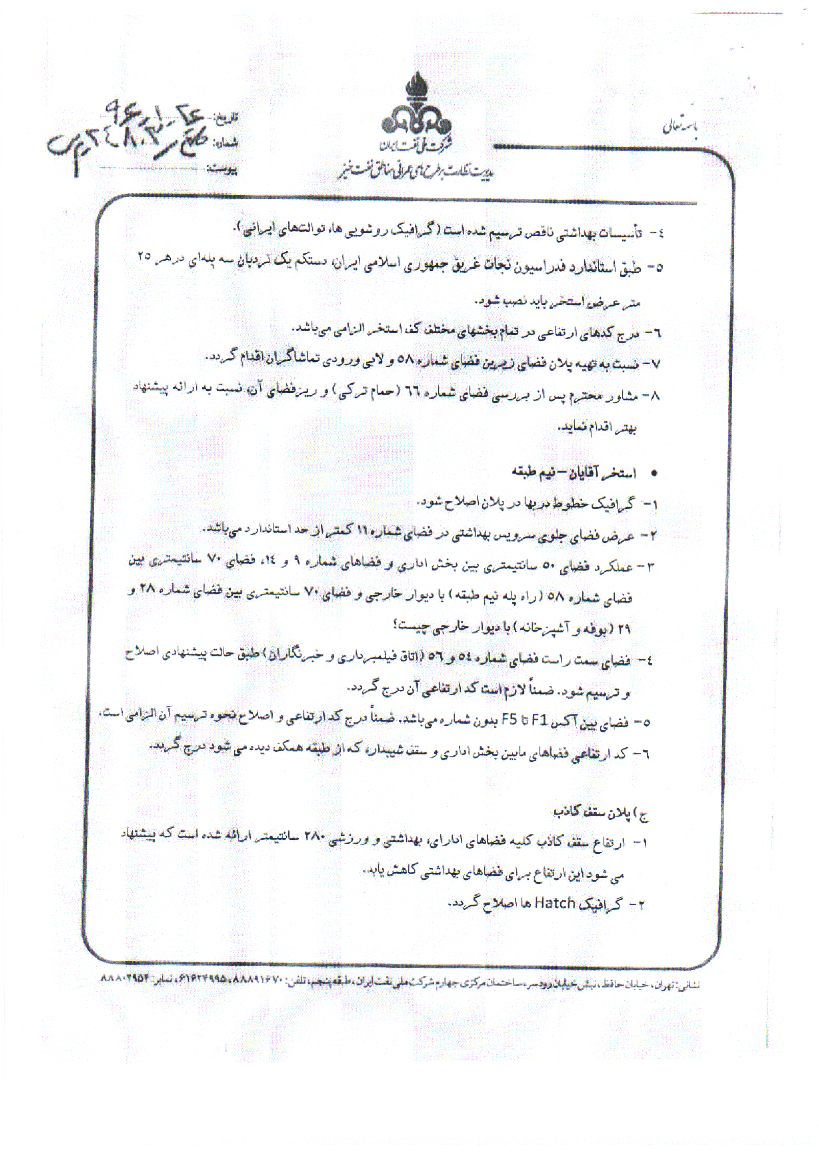 باسمه تعالی
شرکت ملی نفت ایران
مدیریت نظارت بر طرح‌های عمرانی مناطق نفت خیز
تاریخ: ۹۶-۱-۲۶
شماره:
پیوست:
۴- تأسیسات بهداشتی ناقص ترسیم شده است (گرافیک روشویی ها، توالت‌های ایرانی).
۵- طبق استاندارد فدراسیون نجات غریق جمهوری اسلامی ایران، دستکم یک نردبان سه پله‌ای در هر ۲۵
متر عرض استخر باید نصب شود.
۶- درج کدهای ارتفاعی در تمام بخشهای مختلف کف استخر الزامی می‌باشد.
۷- نسبت به تهیه پلان فضای زیرین فضای شماره ۵۸ و لابی ورودی تماشاگران اقدام گردد.
۸- مشاور محترم پس از بررسی فضای شماره ۶۶ (حمام ترکی) و ریزفضای آن، نسبت به ارائه پیشنهاد
بهتر اقدام نماید.
• استخر آقایان – نیم طبقه
۱- گرافیک خطوط دربها در پلان اصلاح شود.
۲- عرض فضای جلوی سرویس بهداشتی در فضای شماره ۱۱ کمتر از حد استاندارد می‌باشد.
۳- عملکرد فضای ۵۰ سانتیمتری بین بخش اداری و فضاهای شماره ۹ و ۱۴، فضای ۷۰ سانتیمتری بین
فضای شماره ۵۸ (راه پله نیم طبقه) با دیوار خارجی و فضای ۷۰ سانتیمتری بین فضای شماره ۲۸ و
۲۹ (بوفه و آشپزخانه) با دیوار خارجی چیست؟
۴- فضای سمت راست فضای شماره ۵۴ و ۵۶ (اتاق فیلمبرداری و خبرنگاران) طبق حالت پیشنهادی اصلاح
و ترسیم شود. ضمناً لازم است کد ارتفاعی آن درج گردد.
۵- فضای بین آکس F1 تا F5 بدون شماره می‌باشد. ضمناً درج کد ارتفاعی و اصلاح نحوه ترسیم آن الزامی است.
۶- کد ارتفاعی فضاهای مابین بخش اداری و سقف شیبدار، که از طبقه همکف دیده می شود درج گردد.
ج) پلان سقف کاذب
۱- ارتفاع سقف کاذب کلیه فضاهای ادارای، بهداشتی و ورزشی ۲۸۰ سانتیمتر ارائه شده است که پیشنهاد
می شود این ارتفاع برای فضاهای بهداشتی کاهش یابد.
۲- گرافیک Hatch ها اصلاح گردد.
نشانی: تهران، خیابان حافظ، نبش خیابان رودسر، ساختمان مرکزی چهارم شرکت ملی نفت ایران، طبقه پنجم، تلفن: ۸۸۸۹۱۶۷۰، ۶۱۶۲۴۹۹۵، نمابر: ۸۸۸۰۲۹۵۴